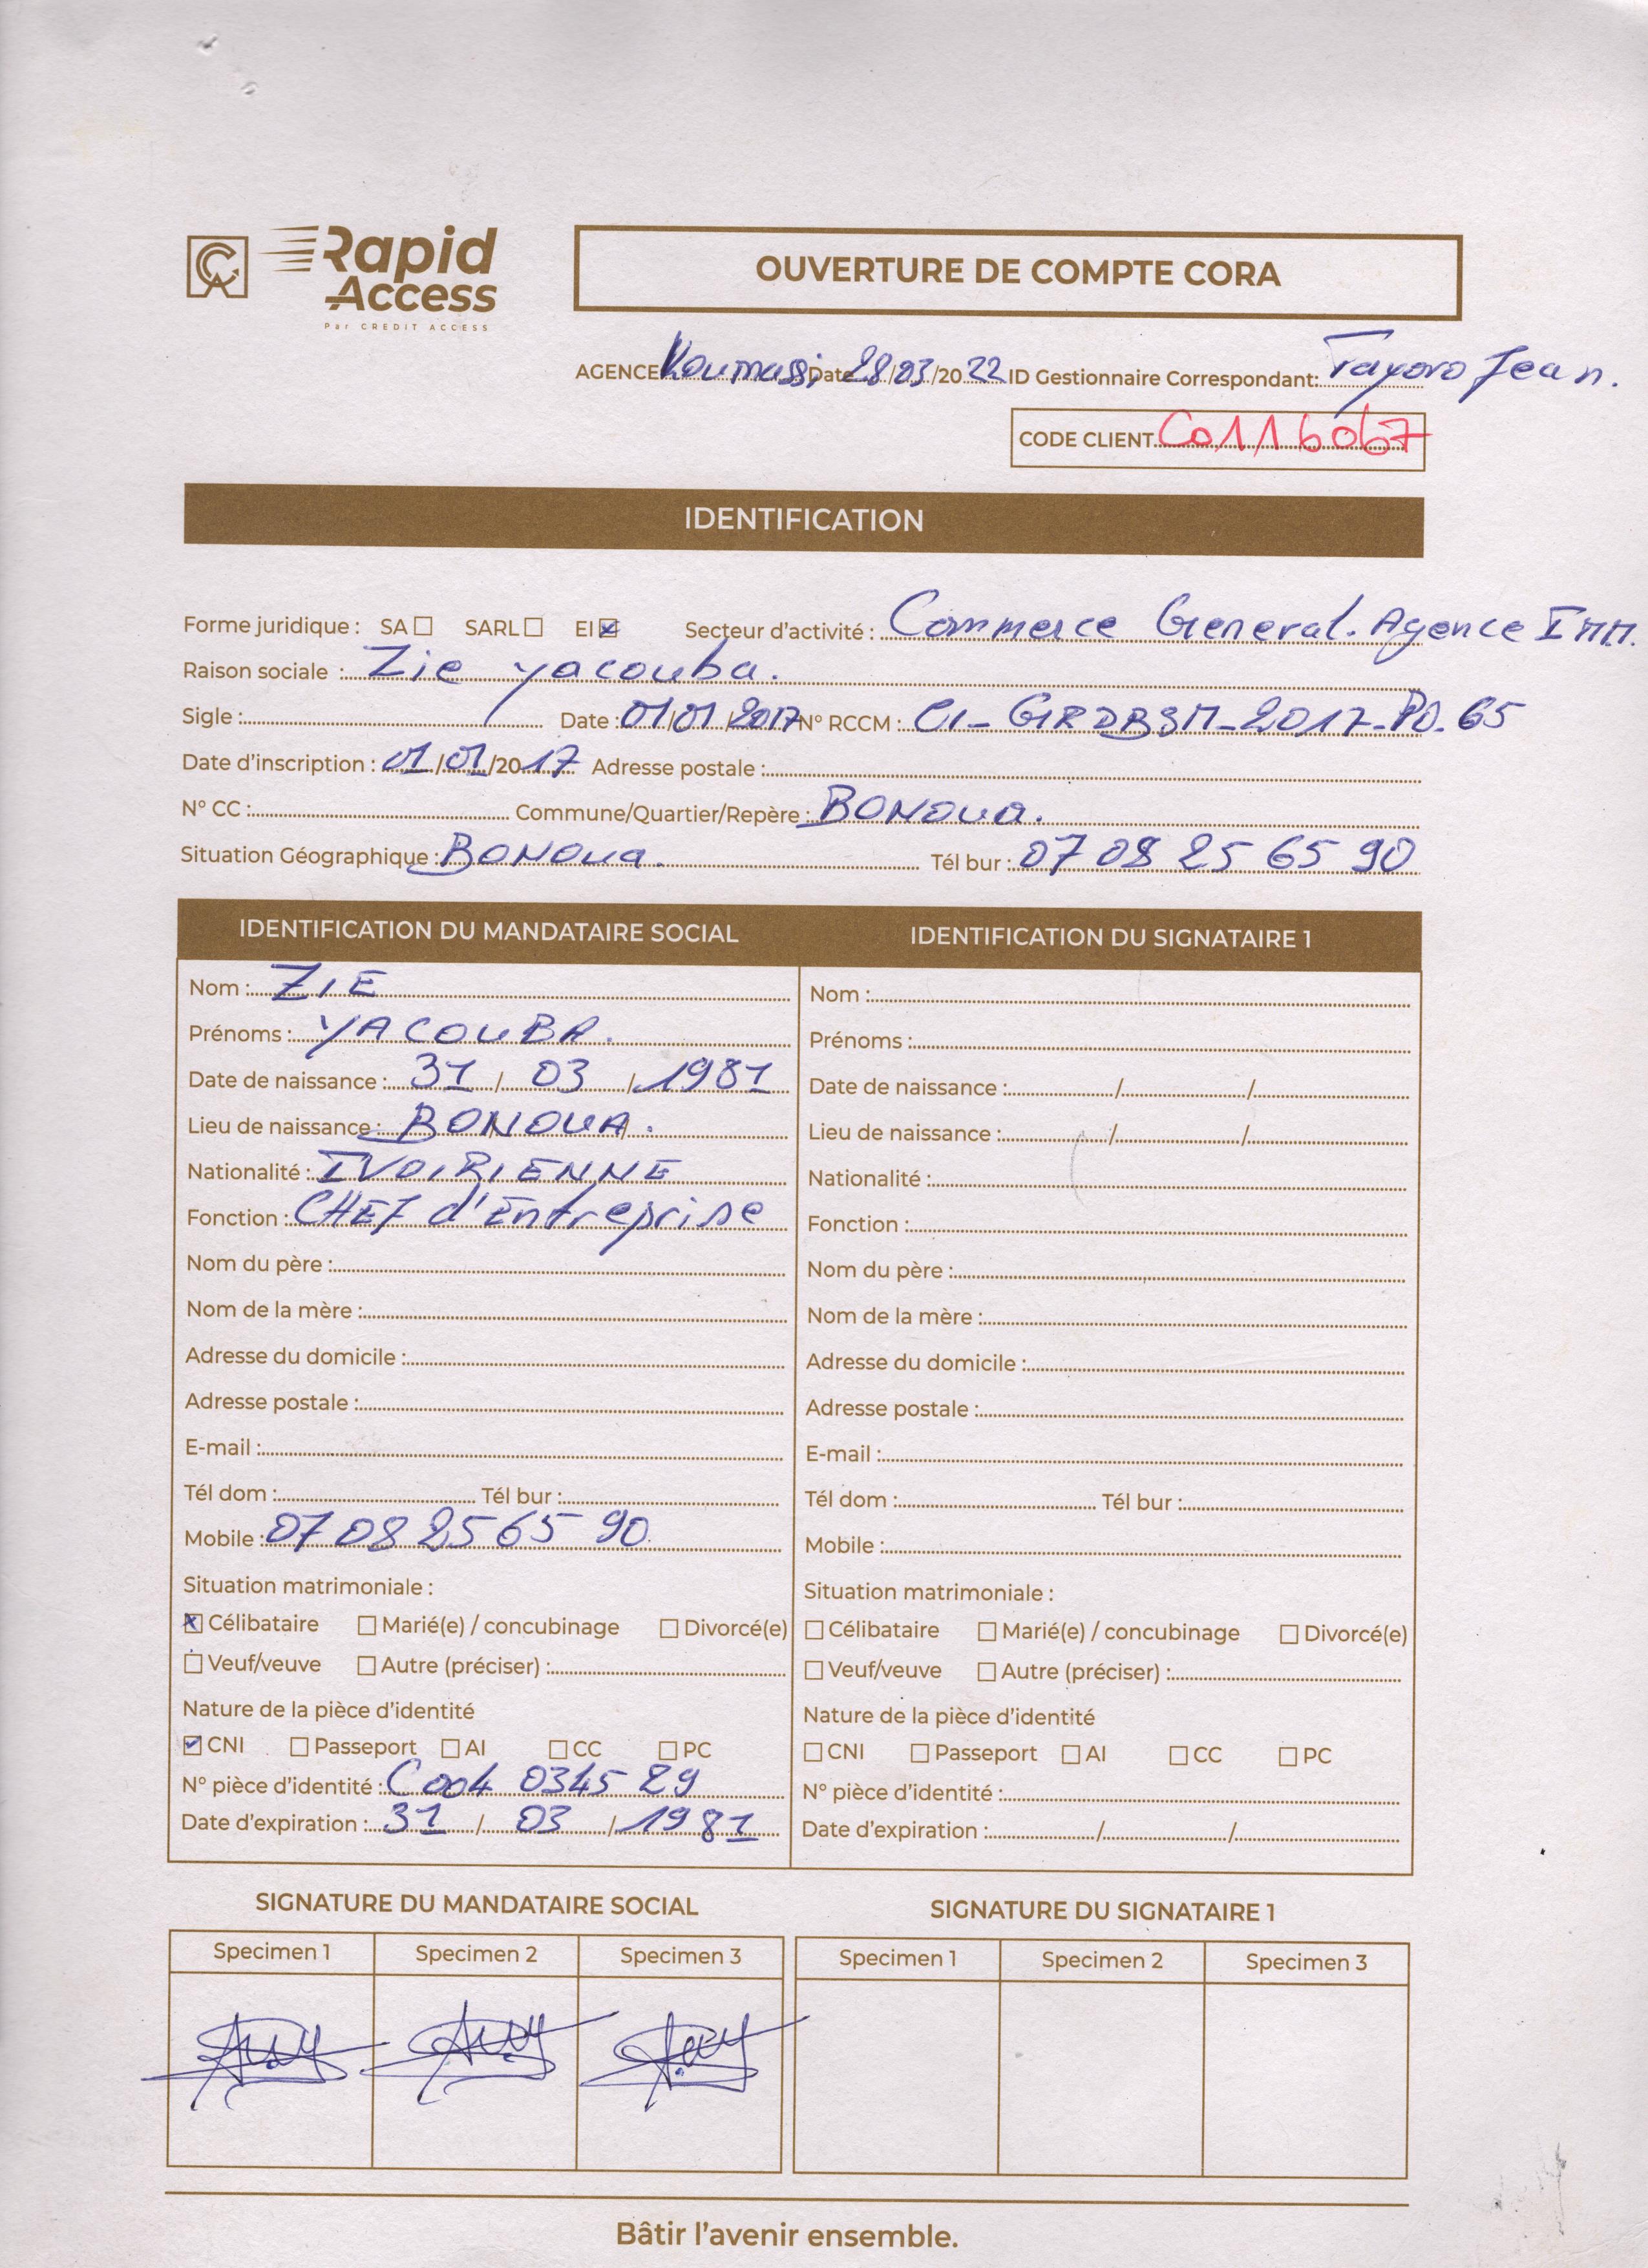 CA Rapid Access
Par CREDIT ACCESS
OUVERTURE DE COMPTE CORA
AGENCE Koumassi Date 28/03/2022 ID Gestionnaire Correspondant: Tayoro Jean.
CODE CLIENT Co116067
IDENTIFICATION
Forme juridique : SA ☐ SARL ☐ EI ☒ Secteur d'activité : Commerce General. Agence Imm.
Raison sociale : Zie yacouba.
Sigle : Date : 01/01/2017 N° RCCM : CI-GRDBSM-2017-P0.65
Date d'inscription : 01/01/2017 Adresse postale :
N° CC : Commune/Quartier/Repère : BONOUA.
Situation Géographique : BONOUA. Tél bur : 07 08 25 65 90
IDENTIFICATION DU MANDATAIRE SOCIAL
Nom : ZIE
Prénoms : YACOUBA.
Date de naissance : 31 / 03 / 1981
Lieu de naissance : BONOUA.
Nationalité : IVOIRIENNE
Fonction : CHEF d'Entreprise
Nom du père :
Nom de la mère :
Adresse du domicile :
Adresse postale :
E-mail :
Tél dom : Tél bur :
Mobile : 07 08 25 65 90
Situation matrimoniale :
☒ Célibataire ☐ Marié(e) / concubinage ☐ Divorcé(e)
☐ Veuf/veuve ☐ Autre (préciser) :
Nature de la pièce d'identité
☑ CNI ☐ Passeport ☐ AI ☐ CC ☐ PC
N° pièce d'identité : C004 0345 29
Date d'expiration : 31 / 03 / 1981
IDENTIFICATION DU SIGNATAIRE 1
Nom :
Prénoms :
Date de naissance : / /
Lieu de naissance : / /
Nationalité :
Fonction :
Nom du père :
Nom de la mère :
Adresse du domicile :
Adresse postale :
E-mail :
Tél dom : Tél bur :
Mobile :
Situation matrimoniale :
☐ Célibataire ☐ Marié(e) / concubinage ☐ Divorcé(e)
☐ Veuf/veuve ☐ Autre (préciser) :
Nature de la pièce d'identité
☐ CNI ☐ Passeport ☐ AI ☐ CC ☐ PC
N° pièce d'identité :
Date d'expiration : / /
SIGNATURE DU MANDATAIRE SOCIAL
Specimen 1 Specimen 2 Specimen 3
SIGNATURE DU SIGNATAIRE 1
Specimen 1 Specimen 2 Specimen 3
Bâtir l'avenir ensemble.